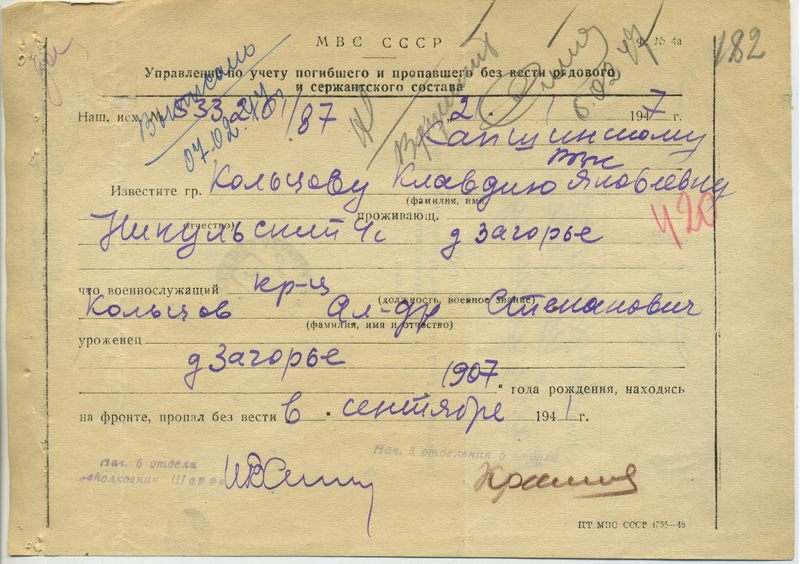 МВС СССР
ф. № 4а
182
Управление по учету погибшего и пропавшего без вести рядового
и сержантского состава
Выписано
07.02.47г.
Вручить
6.02.47
Наш. исх. № 533210/87 „2“ 1 1947 г.
Капшинскому
РВК
Известите гр. Кольцову Клавдию Яковлевну
(фамилия, имя,
отчество) проживающ.
Никульский с/с д Загорье
420
что военнослужащий кр-ц
(должность, военное звание)
Кольцов Ал-др Степанович
(фамилия, имя и отчество)
уроженец
д Загорье
1907 года рождения, находясь
на фронте, пропал без вести в „ сентябре 1941 г.
Нач. 6 отдела
полковник
Нач. 3 отделения 6 отдела
ЦТ МВС СССР 1795—46